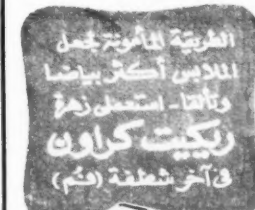 الطريقة المأمونة لجعل
الملابس أكثر بياضا
وتألقا - استعملى زهرة
ريكيت كراون
فى آخر شطفة (فم)